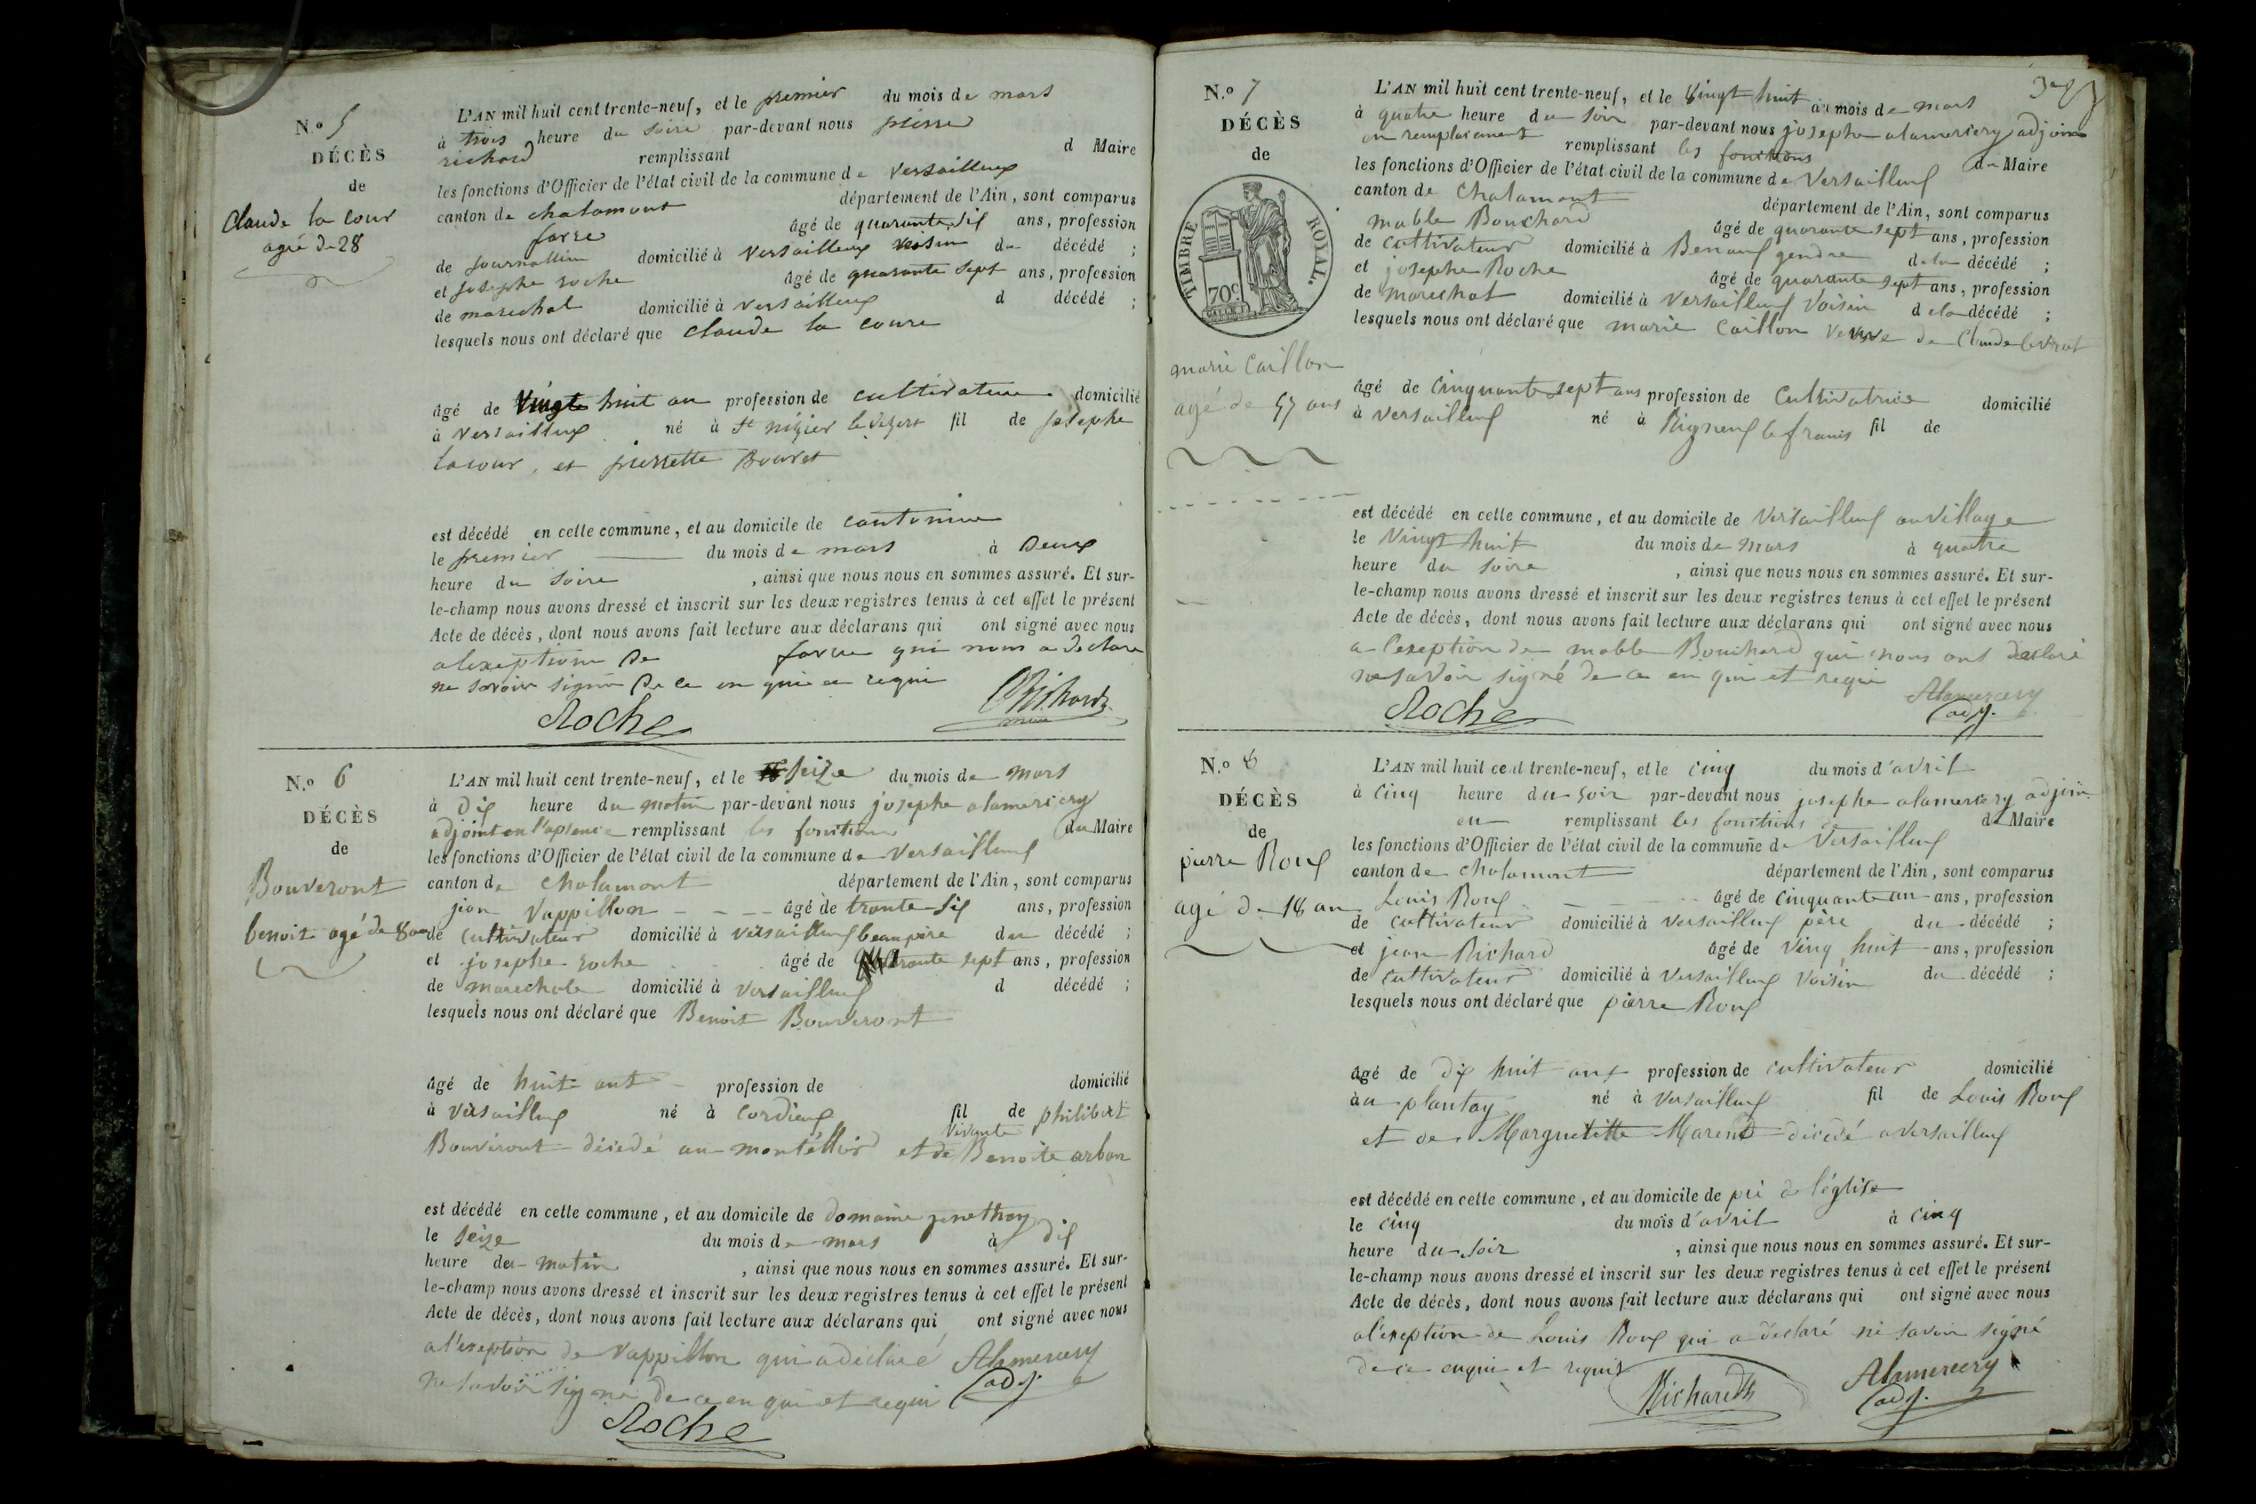 N.o 5
DÉCÈS
de
Claude la cour
agé de 28
L'AN mil huit cent trente-neuf, et le premier du mois de mars
à trois heure du soire par-devant nous pierre
richard remplissant d Maire
les fonctions d'Officier de l'état civil de la commune de Versailleux
canton de chalamont département de l'Ain, sont comparus
farre âgé de quarante six ans, profession
de journallier domicilié à Versailleux voisin du décédé ;
et josephe roche âgé de quarante sept ans, profession
de marechal domicilié à Versailleux d décédé ;
lesquels nous ont déclaré que claude la coure
âgé de Vingte huit an profession de cultivateur domicilié
à Versailleux né à St nizier le dezert fil de josephe
lacour, et pierrette Bouvet
est décédé en cette commune, et au domicile de
le premier du mois de mars à Deux
heure du soire , ainsi que nous nous en sommes assuré. Et sur-
le-champ nous avons dressé et inscrit sur les deux registres tenus à cet effet le présent
Acte de décès, dont nous avons fait lecture aux déclarans qui ont signé avec nous
alexeption De farre qui nous a declare
ne savoir signé De ce en qui a requi
Roche Richard
maire
N.o 6
DÉCÈS
de
Bouveront
benoit agé de 8 an
L'AN mil huit cent trente-neuf, et le seize du mois de mars
à dix heure du matin par-devant nous josephe alamercery
adjoint en l'apsence remplissant les fonction du Maire
les fonctions d'Officier de l'état civil de la commune de Versailleux
canton de chalamont département de l'Ain, sont comparus
jean Vappillon âgé de trante-six ans, profession
de cultivateur domicilié à versailleux beaupère du décédé ;
et josephe roche âgé de quarante sept ans, profession
de marechale domicilié à Versailleux d décédé ;
lesquels nous ont déclaré que Benoit Bouveront
âgé de huit ant profession de domicilié
à versailleux né à cordieux fil de philibert
vivante
Bouveront décédé au montéllier et de Benoite arban
est décédé en cette commune, et au domicile de domaine
le seize du mois de mars à dix
heure du matin , ainsi que nous nous en sommes assuré. Et sur-
le-champ nous avons dressé et inscrit sur les deux registres tenus à cet effet le présent
Acte de décès, dont nous avons fait lecture aux déclarans qui ont signé avec nous
a l'exeption de Vappillon qui a déclaré
ne savoir signé de ce en qui et requi
Alamercery
adj.
Roche
N.o 7
DÉCÈS
de
TIMBRE ROYAL.
70c
marie Caillon
agé de 57 ans
L'AN mil huit cent trente-neuf, et le vingt huit du mois de mars
à quatre heure du soir par-devant nous josephe alamercery adjoin
en remplacement remplissant les fonctions du Maire
les fonctions d'Officier de l'état civil de la commune de Versailleux
canton de Chalamont département de l'Ain, sont comparus
mable Bouchard âgé de quarante sept ans, profession
de cultivateur domicilié à gendre de la décédé ;
et josephe Roche âgé de quarante sept ans, profession
de marechal domicilié à Versailleux Voisin de la décédé ;
lesquels nous ont déclaré que marie Caillon Veuve de Claude
âgé de cinquante sept ans profession de Cultivatrice domicilié
à Versailleux né à Rigneux le franis fil de
est décédé en cette commune, et au domicile de Versailleux au Village
le Vingt huit du mois de mars à quatre
heure du soire , ainsi que nous nous en sommes assuré. Et sur-
le-champ nous avons dressé et inscrit sur les deux registres tenus à cet effet le présent
Acte de décès, dont nous avons fait lecture aux déclarans qui ont signé avec nous
a l'exeption de mable Bouchard qui nous ont declaré
ne savoir signé de ce en qui et requi
Roche Alamercery
adj.
N.o 8
DÉCÈS
de
pierre Roux
agé de 18 an
L'AN mil huit cent trente-neuf, et le cinq du mois d'avril
à cinq heure du soir par-devant nous josephe alamercery adjoin
en remplissant les fonctions de Maire
les fonctions d'Officier de l'état civil de la commune de Versailleux
canton de chalamont département de l'Ain, sont comparus
Louis Roux âgé de cinquante un ans, profession
de cultivateur domicilié à Versailleux père du décédé ;
et jean Richard âgé de Vinq huit ans, profession
de cultivateur domicilié à Versailleux Voisin du décédé ;
lesquels nous ont déclaré que pierre Roux
âgé de dix huit anx profession de cultivateur domicilié
à au plantay né à Versailleux fil de Louis Roux
et de Marguetitte Marend décédé a Versailleux
est décédé en cette commune, et au domicile de pré de l'église
le cinq du mois d'avril à cinq
heure du soir , ainsi que nous nous en sommes assuré. Et sur-
le-champ nous avons dressé et inscrit sur les deux registres tenus à cet effet le présent
Acte de décès, dont nous avons fait lecture aux déclarans qui ont signé avec nous
a l'exeption de Louis Roux qui a declaré ne savoir signé
de ce enqui et requis
Richard Alamercery
adj.